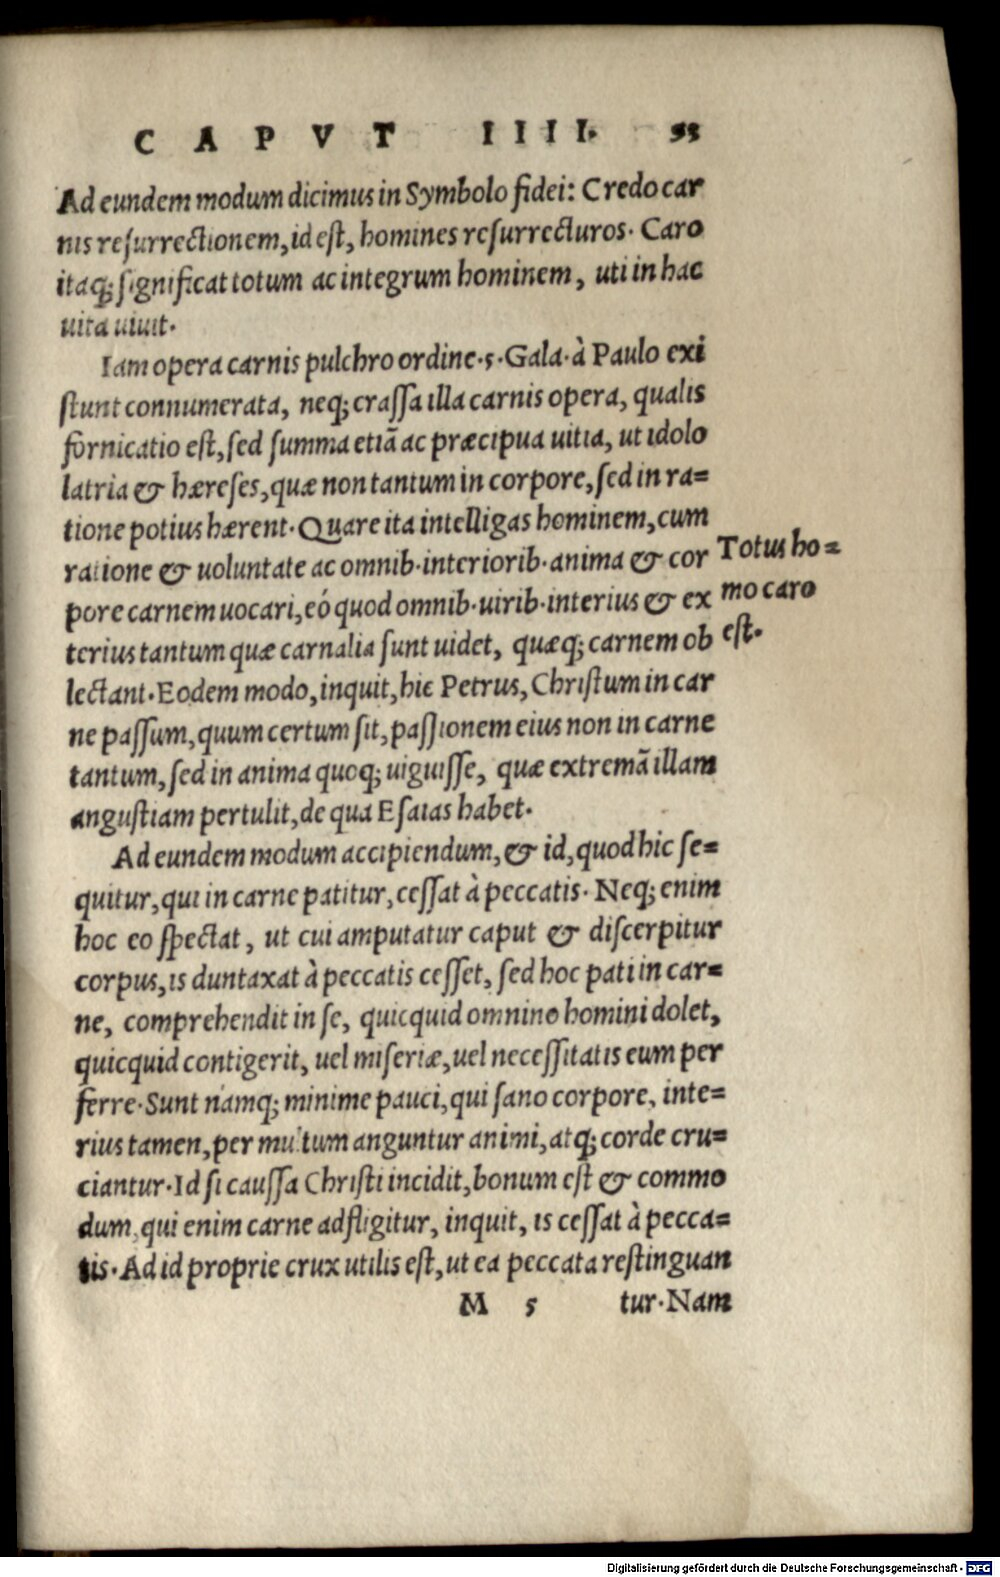 CAPVT IIII. 93
Ad eundem modum dicimus in Symbolo fidei: Credo car
nis reſurrectionem, id eſt, homines reſurrecturos. Caro
itaq; ſignificat totum ac integrum hominem, uti in hac
uita uiuit.
Iam opera carnis pulchro ordine. 5. Gala. à Paulo exi
ſtunt connumerata, neq; craſſa illa carnis opera, qualis
fornicatio eſt, ſed ſumma etiã ac præcipua uitia, ut idolo
latria & hæreſes, quæ non tantum in corpore, ſed in ra=
tione potius hærent. Quare ita intelligas hominem, cum
ratione & uoluntate ac omnib. interiorib. anima & cor
pore carnem uocari, eó quod omnib. uirib. interius & ex
terius tantum quæ carnalia ſunt uidet, quæq; carnem ob
lectant. Eodem modo, inquit, hic Petrus, Chriſtum in car
ne paſſum, quum certum ſit, paſſionem eius non in carne
tantum, ſed in anima quoq; uiguiſſe, quæ extremã illam
anguſtiam pertulit, de qua Eſaias habet.
Totus ho=
mo caro
eſt.
Ad eundem modum accipiendum, & id, quod hic ſe=
quitur, qui in carne patitur, ceſſat à peccatis. Neq; enim
hoc eo ſpectat, ut cui amputatur caput & diſcerpitur
corpus, is duntaxat à peccatis ceſſet, ſed hoc pati in car=
ne, comprehendit in ſe, quicquid omnino homini dolet,
quicquid contigerit, uel miſeriæ, uel neceſſitatis eum per
ferre. Sunt namq; minime pauci, qui ſano corpore, inte=
rius tamen, per multum anguntur animi, atq; corde cru=
ciantur. Id ſi cauſſa Chriſti incidit, bonum eſt & commo
dum, qui enim carne adfligitur, inquit, is ceſſat à pecca=
tis. Ad id proprie crux utilis eſt, ut ea peccata reſtinguan
M 5 tur. Nam
Digitalisierung gefördert durch die Deutsche Forschungsgemeinschaft - DFG